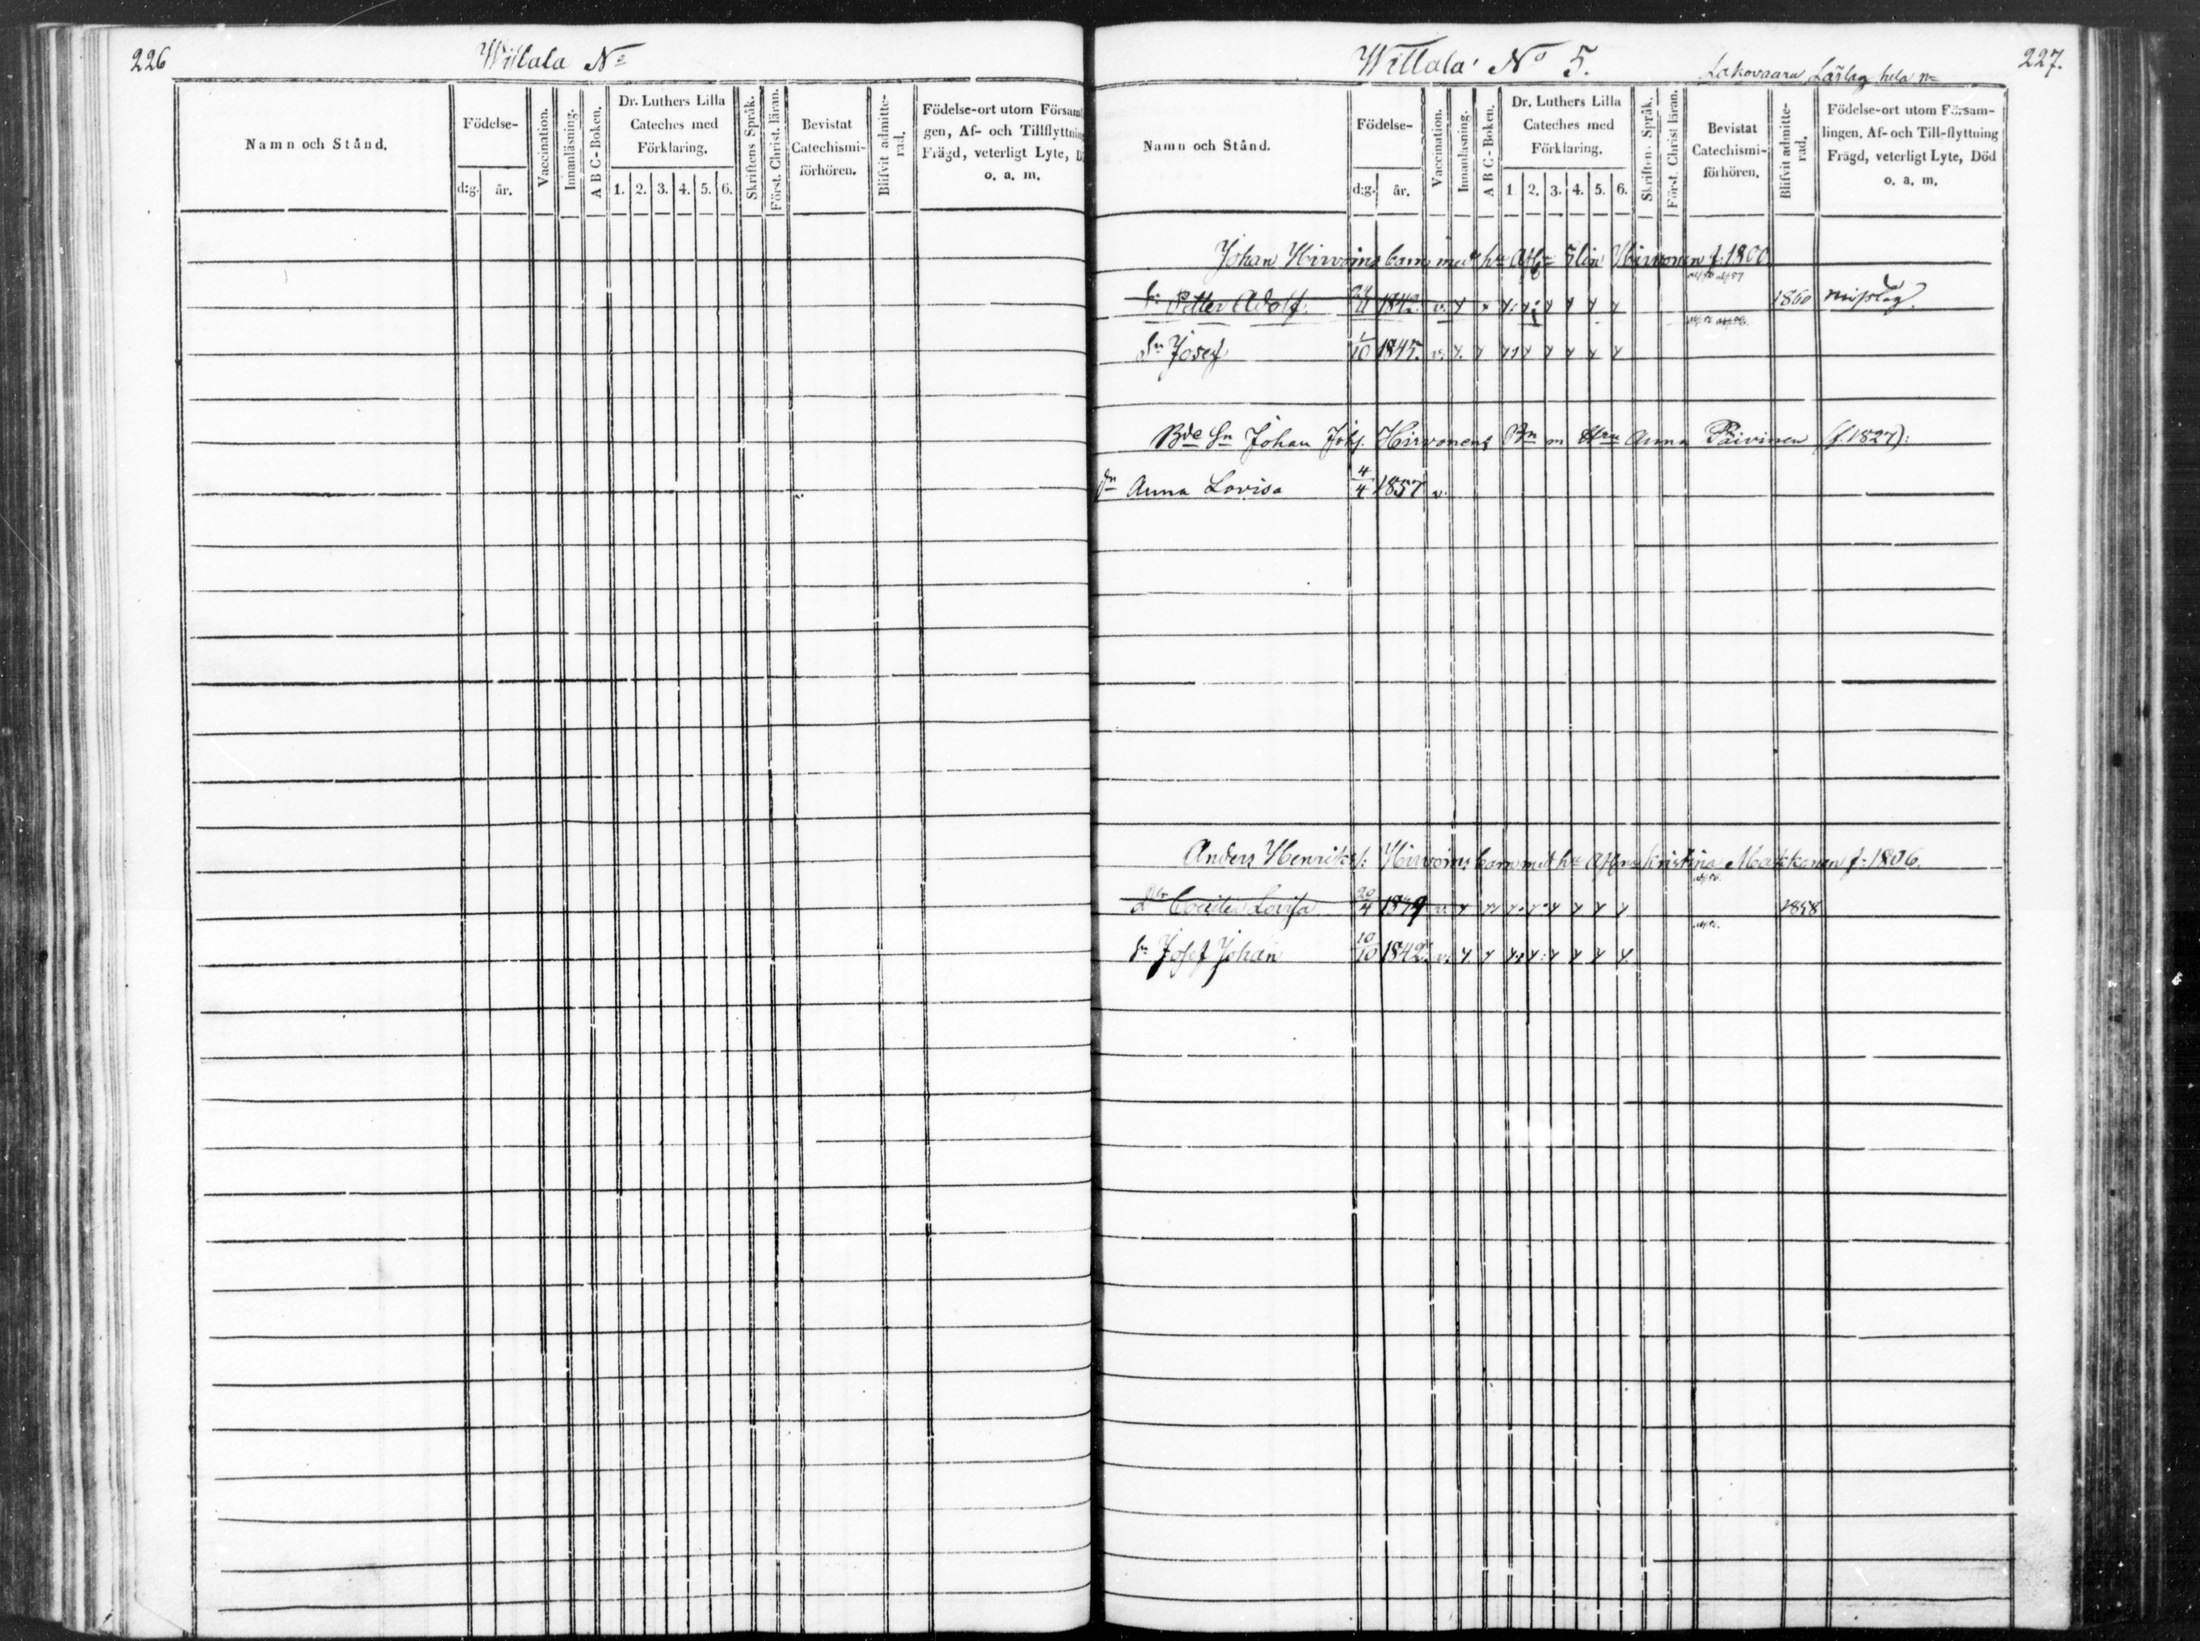 226
Willala No
Namn och Stånd.
Födelse-
d:g.
år.
Vaccination.
Innanläsning.
A B C-Boken.
Dr. Luthers Lilla
Cateches med
Förklaring.
1. 2. 3. 4. 5. 6.
Skriftens Språk.
Först. Christ. läran.
Bevistat
Catechismi-
förhören.
Blifvit admitte-
rad.
Födelse-ort utom Försam
gen, Af- och Tillflyttning
Frägd, veterligt Lyte, D
o. a. m.
227.
Willala No 5.
Lakovaara Läslag hela
Namn och Stånd.
Födelse-
d:g.
år.
Vaccination.
Innanläsning.
A B C-Boken.
Dr. Luthers Lilla
Cateches med
Förklaring.
1. 2. 3. 4. 5. 6.
Skriften. Språk.
Först. Christ läran.
Bevistat
Catechismi-
förhören.
Blifvit admitte-
rad.
Födelse-ort utom Försam-
lingen, Af- och Till-flyttning
Frägd, veterligt Lyte, Död
o. a. m.
Johan Hirvoins barn med Elin Hirvonen f. 1800
Sn Petter Adolf. 1842. v. 1860
Sn Josef 1845. v.
Bde Sn Johan Johs. Hirvonens Bn m Hru Anna Päivinen (f. 1827):
dn Anna Lovisa 4/4 1857 v.
Anders Henriks: Hirvoins barn med Kristina Makkonen f. 1806.
Lovisa 20/4 1858
Sn Josef Johan 10/10 1842. v.